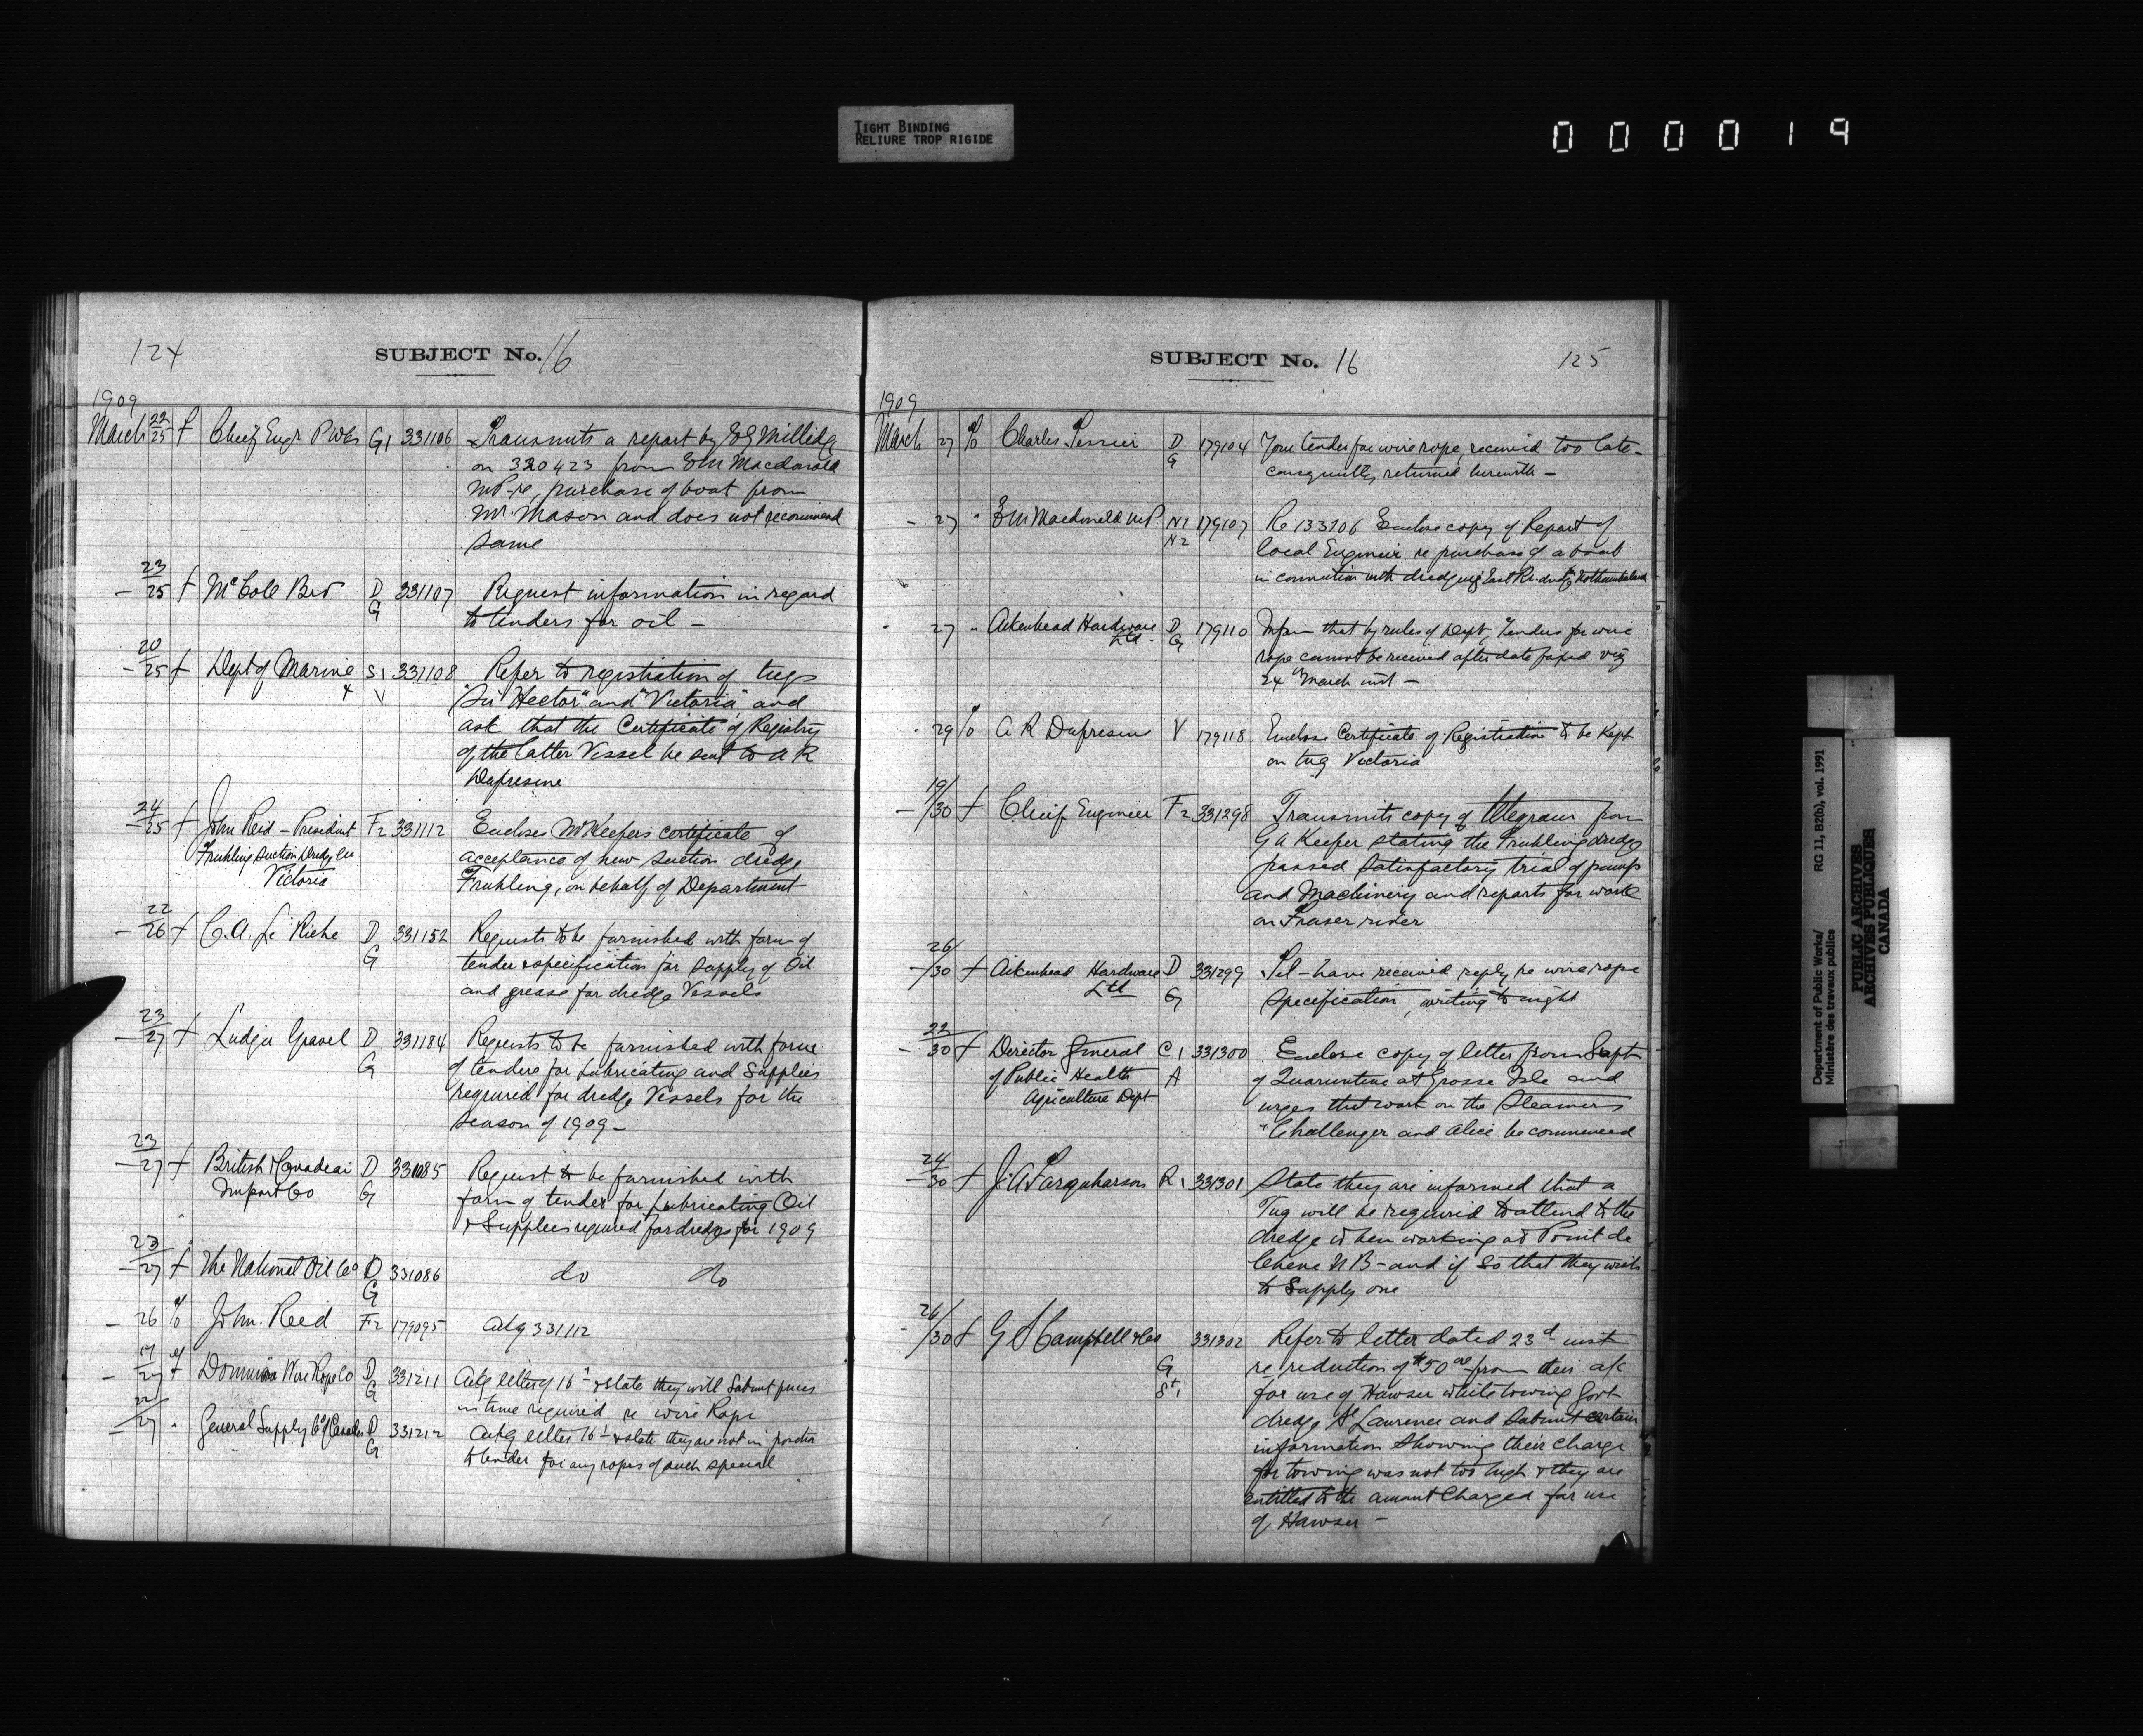 TIGHT BINDING
RELIURE TROP RIGIDE
000019
124
SUBJECT No. 16
1909
March 22/25 f Chief Engr P Wks G1 331106 Transmits a report by E G Millidge
on 320423 from E M Macdonald
MP. re, purchase of boat from
Mr. Mason and does not recommend
same
- 23/25 f McColl Bro D G 331107 Request information in regard
to tenders for oil -
- 20/25 f Dept of Marine S1 V 331108 Refer to registration of tugs
"Sir Hector" and "Victoria" and
ask that the Certificate of Registry
of the latter Vessel be sent to A R
Dufresne
- 24/25 f John Reid - President F2 331112 Encloses Mr Keefers certificate of
Fruhling Suction Dredge Co acceptance of new suction dredge
Victoria Fruhling, on behalf of Department
- 22/26 f C. A. Le Riche D G 331152 Requests to be furnished with form of
tender & specification for supply of Oil
and grease for dredge Vessels
- 23/27 f Ludger Gravel D G 331184 Requests to be furnished with forms
of tenders for Lubricating and Supplies
required for dredge Vessels for the
season of 1909 -
- 23/27 f British & Canadian D 331085 Request to be furnished with
Import Co G form of tender for Lubricating Oil
& Supplies required for dredges for 1909
- 23/27 f The National Oil Co D G 331086 do do
- 26 % John Reid F2 179095 Ackg 331112
- 17/27 f Dominion Wire Rope Co D G 331211 Ackg letter of 16th & state they will submit prices
in time required re wire Rope
- 22/27 " General Supply Co of Canada D G 331212 Ackg letter 16th & state they are not in position
to tender for any ropes of such special
SUBJECT No. 16
125
1909
March 27 % Charles Tessier D G 179104 Your tender for wire rope, received too late -
consequently returned herewith -
- 27 " E M Macdonald MP N1 N2 179107 Re 133206 Enclose copy of Report of
local Engineer re purchase of a boat
in connection with dredging East River
- 27 " Aikenhead Hardware D 179110 Inform that by rules of Dept, Tenders for wire
Ltd G rope cannot be received after date fixed viz
24th March inst -
- 29 % A R Dufresne V 179118 Enclose Certificate of Registration to be Kept
on tug Victoria
- 19/30 f Chief Engineer F2 331298 Transmits copy of telegram from
G A Keefer stating the Fruhling dredge
passed satisfactory trial of pumps
and Machinery and reports for work
on Fraser river
- 26/30 f Aikenhead Hardware D 331299 Tel - have received reply re wire rope
Ltd G specification, writing to night
- 22/30 f Director General C1 331300 Enclose copy of letter from Supt
of Public Health A of Quarantine at Grosse Isle and
Agriculture Dept urges that work on the Steamers
"Challenger and Alice be commenced
- 24/30 f J. A Farquharson R1 331301 State they are informed that a
Tug will be required to attend to the
dredge when working at Point du
Chene N B - and if so that they wish
to supply one
- 26/30 f G S Campbell & Co 331302 Refer to letter dated 23d inst
G re, reduction of $50.00 from their a/c
St1 for use of Hawser while towing Govt
dredge St Lawrence and submit certain
information showing their charge
for towing was not too high & they are
entitled to the amount Charged for use
of Hawser -
Department of Public Works/ RG 11, B2(b), vol. 1991
Ministère des travaux publics
PUBLIC ARCHIVES
ARCHIVES PUBLIQUES
CANADA